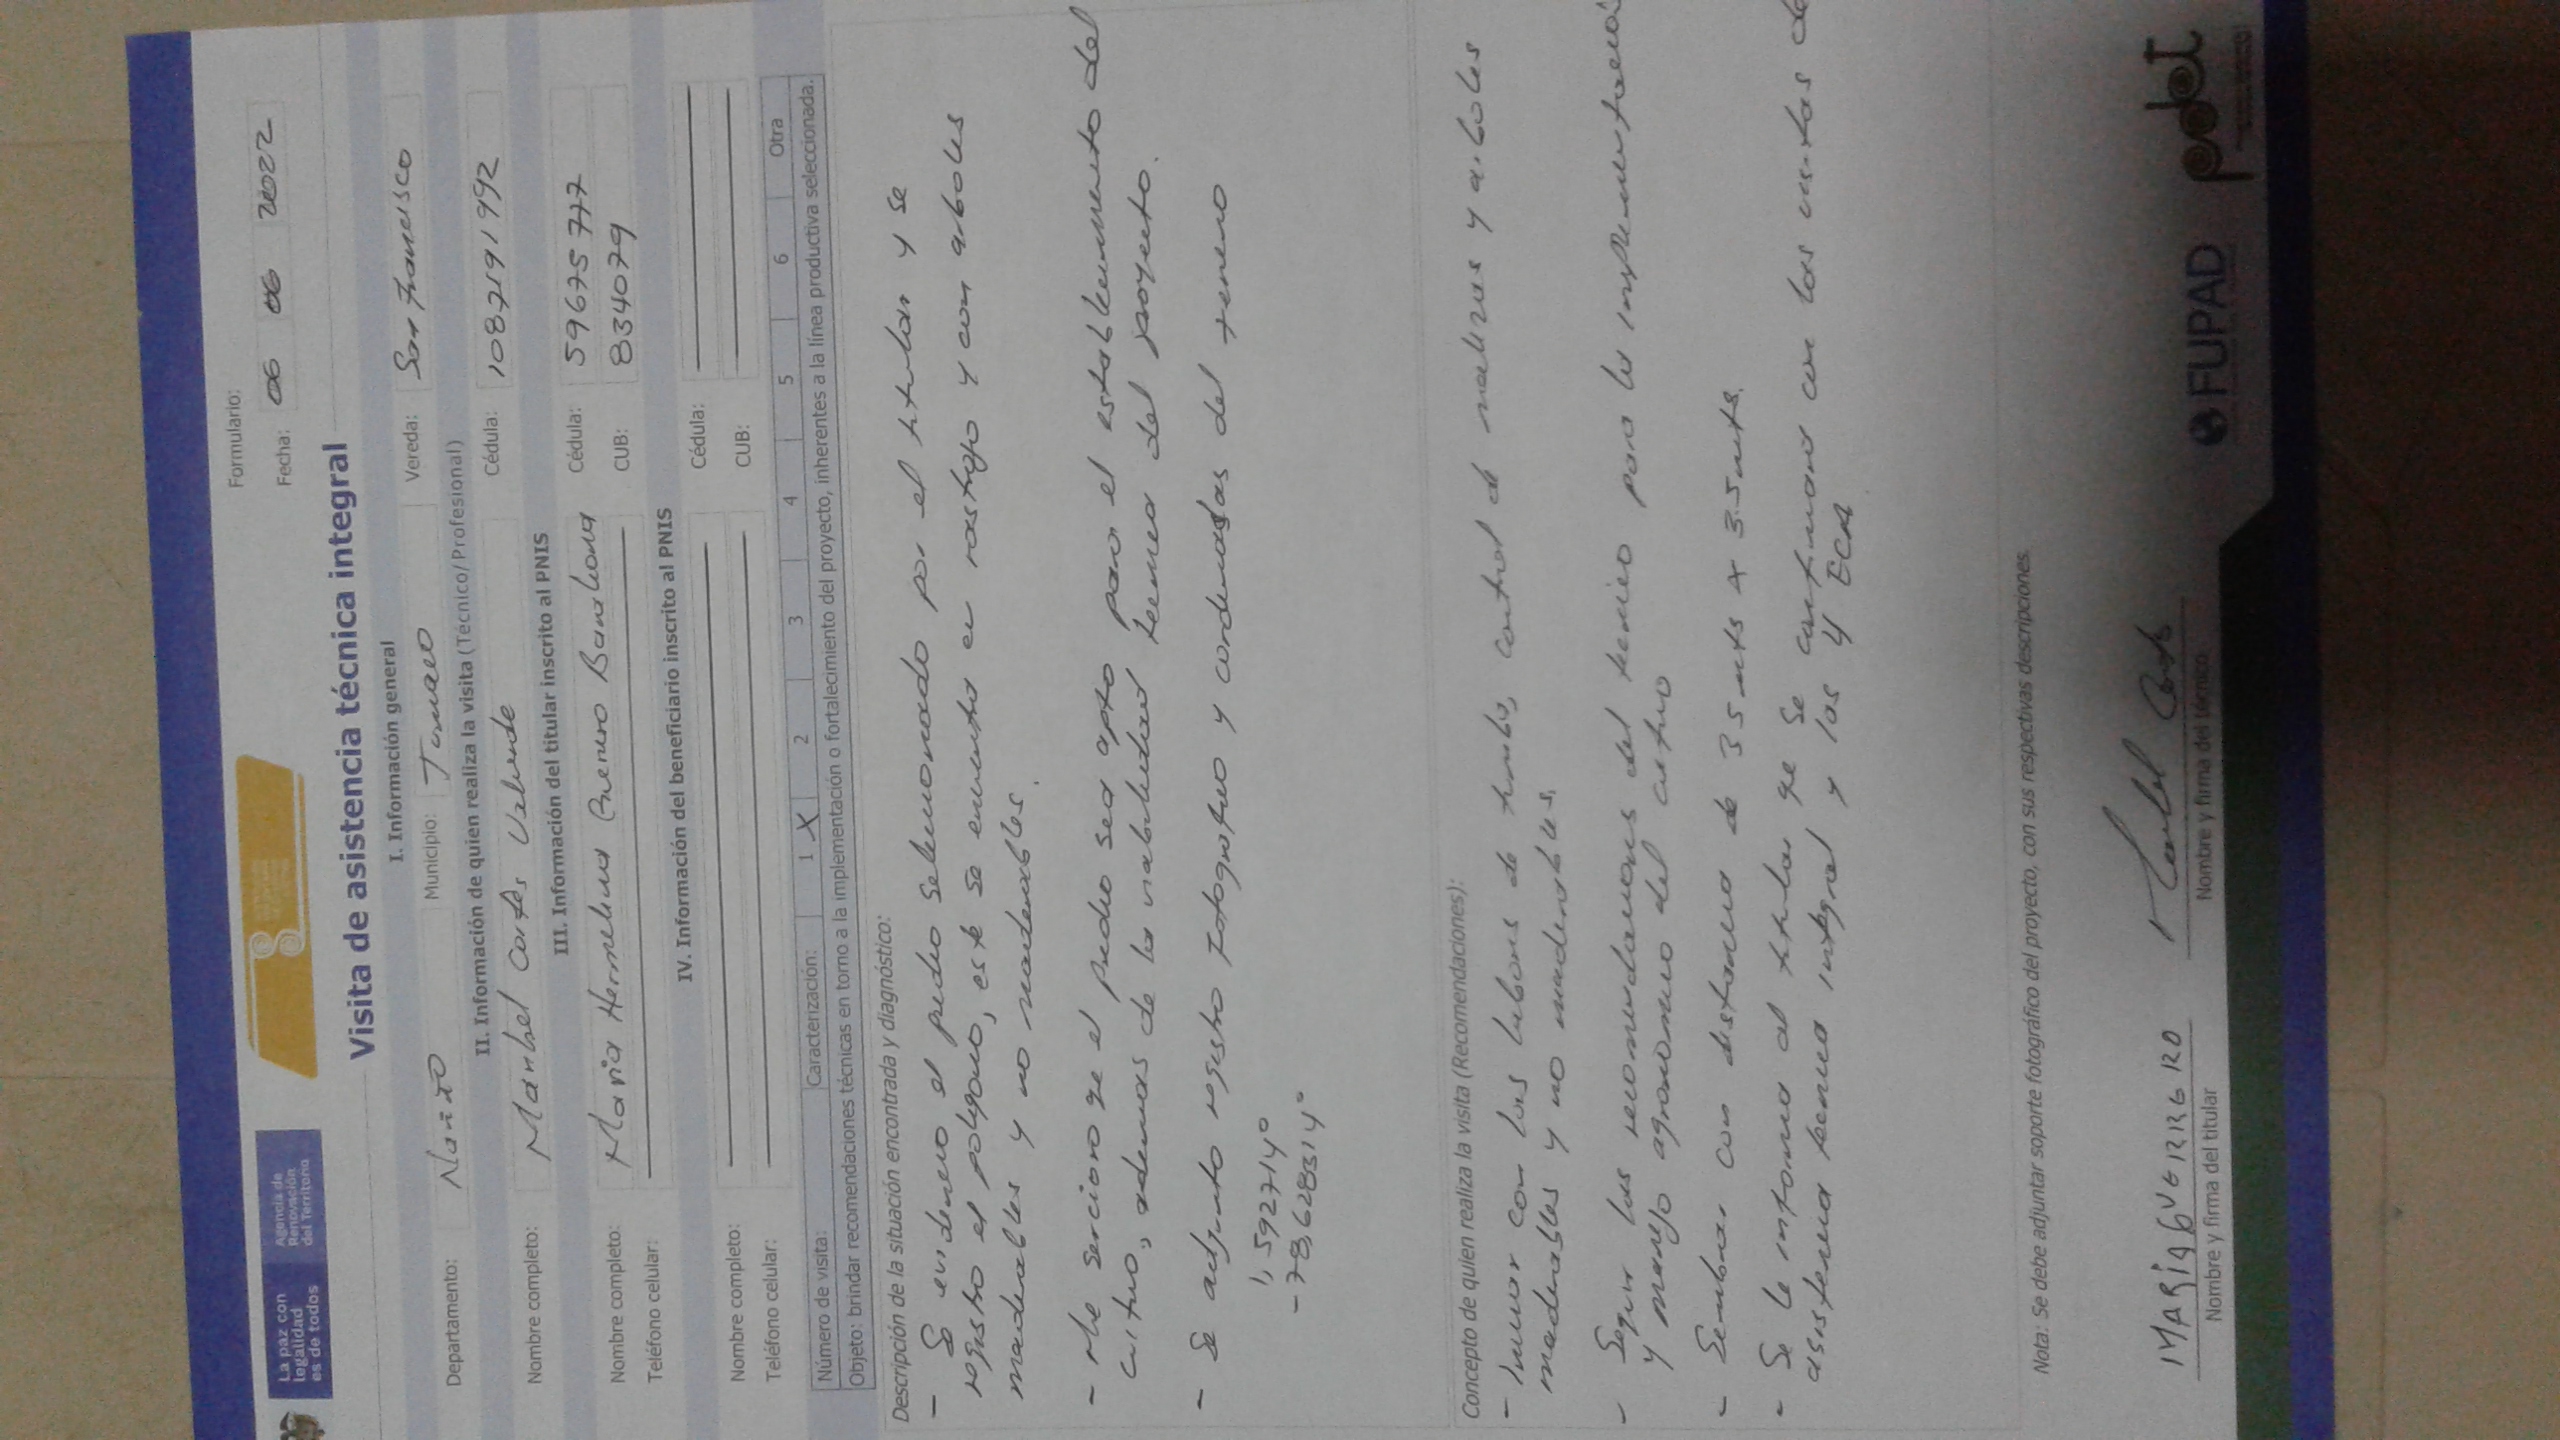 La paz con
legalidad
es de todos
Agencia de
Renovación
del Territorio
Formulario:
Fecha: 06 06 2022
Visita de asistencia técnica integral
I. Información general
Departamento: Nariño Municipio: Tumaco Vereda: San Francisco
II. Información de quien realiza la visita (Técnico/ Profesional)
Nombre completo: Maribel Cortes Valverde Cédula: 1087191992
III. Información del titular inscrito al PNIS
Nombre completo: Maria Hermelina Guerrero Barahona Cédula: 59675777
Teléfono celular: CUB: 834079
IV. Información del beneficiario inscrito al PNIS
Nombre completo: Cédula:
Teléfono celular: CUB:
Número de visita: Caracterización: 1 X 2 3 4 5 6 Otra
Objeto: brindar recomendaciones técnicas en torno a la implementación o fortalecimiento del proyecto, inherentes a la línea productiva seleccionada.
Descripción de la situación encontrada y diagnóstico:
- Se evidencio el predio seleccionado por el titular y se
registro el poligono, este se encuentra en rastrojo y con arboles
maderables y no maderables.
- Me sercioro que el predio sea apto para el establecimiento del
cultivo, ademas de la viabilidad tecnica del proyecto.
- Se adjunto registro fotografico y cordenadas del terreno
1,592714°
-78,628314°
Concepto de quien realiza la visita (Recomendaciones):
- Iniciar con las labores de tumba, control de malezas y arboles
maderables y no maderables.
- Seguir las recomendaciones del tecnico para la implementacion
y manejo agronomico del cultivo
- Sembrar con distancia de 3.5 mts x 3.5 mts.
- Se le informa al titular que se continuara con las visitas de
asistencia tecnica integral y las 4 ECA.
Nota: Se debe adjuntar soporte fotográfico del proyecto, con sus respectivas descripciones.
Maribel Cortes
Nombre y firma del titular Nombre y firma del técnico
FUPAD pdet